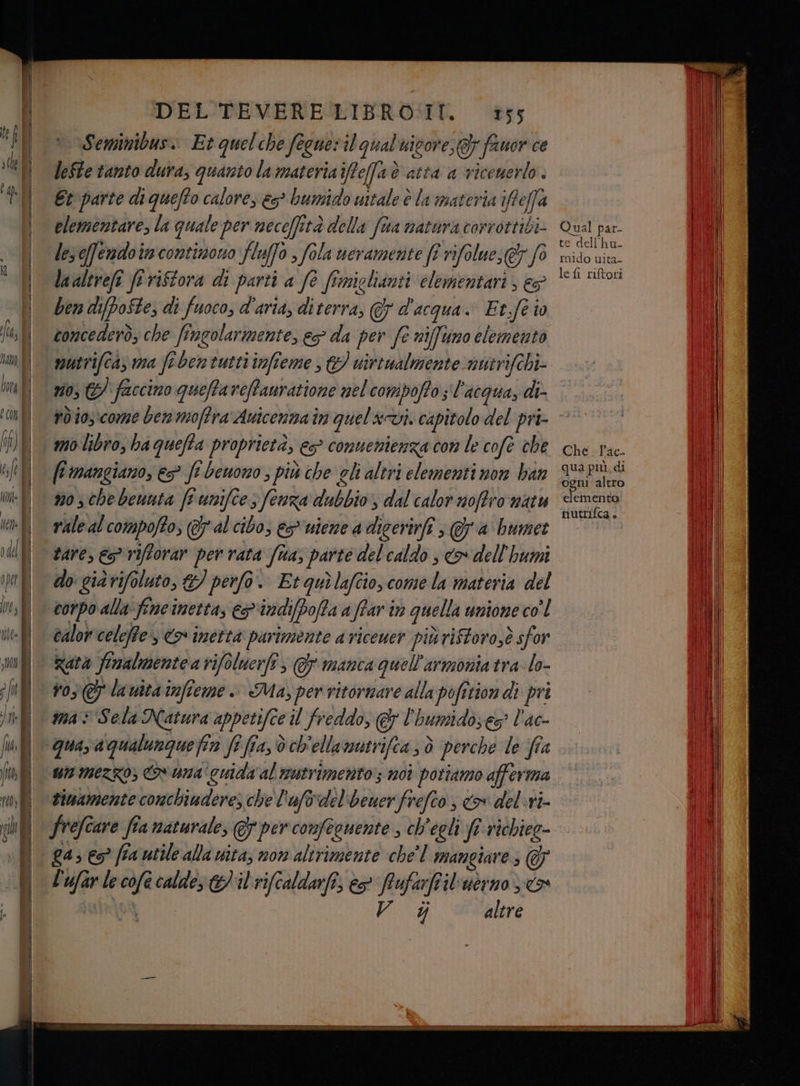 DEL TEVERE LIBRO II. 155
Seminibus. Et quel che ſegue: il qual uigore, & fauor ce
leſte tanto dura, quanto la materia iſteſſa è atta a riceuerlo.
Et parte di queſto calore, & humido uitale è la materia iſteſſa
elementare, la quale per neceſſità della ſua natura corrottibi-
le, eſſendo in continouo fluſſo, ſola ueramente ſi riſolue, & ſo
la altreſi ſi riſtora di parti a ſe ſimiglianti elementari, &
ben diſpoſte, di fuoco, d'aria, di terra, & d'acqua. Et ſe io
concederò, che ſingolarmente, & da per ſe niſſuno elemento
nutriſca, ma ſi ben tutti inſieme, & uirtualmente nutriſchi-
no, & faccino queſta reſtauratione nel compoſto; l'acqua, di-
rò io, come ben moſtra Auicenna in quel xvi. capitolo del pri-
mo libro, ha queſta proprietà, & conuenienza con le coſe che
ſi mangiano, & ſi beuono, più che gli altri elementi non han
no, che beuuta ſi uniſce, ſenza dubbio, dal calor noſtro natu
rale al compoſto, & al cibo, & uiene a digerirſi, & a humet
tare, & riſtorar per rata ſua, parte del caldo, & dell'humi
do già riſoluto, & perſo. Et quì laſcio, come la materia del
corpo alla fine inetta, & indiſpoſta a ſtar in quella unione co'l
calor celeſte, & inetta parimente a riceuer più riſtoro, è sfor
zata finalmente a riſoluerſi, & manca quell'armonia tra lo-
ro, & la uita inſieme. Ma, per ritornare alla poſition di pri
ma: Se la Natura appetiſce il freddo, & l'humido, & l'ac-
qua, a qualunque fin ſi ſia, ò ch'ella nutriſca, ò perche le ſia
un mezzo, & una guida al nutrimento; noi potiamo afferma
tiuamente conchiudere, che l'uſo del beuer freſco, & del ri-
freſcare ſia naturale, & per conſeguente, ch'egli ſi richieg-
ga, & ſia utile alla uita, non altrimente che'l mangiare, &
l'uſar le coſe calde, & il riſcaldarſi, & ſtufarſi il uerno, &
V ij altre
Qual par-
te dell'hu-
mido uita-
le ſi riſtori
Che l'ac-
qua più di
ogni altro
elemento
nutriſca.